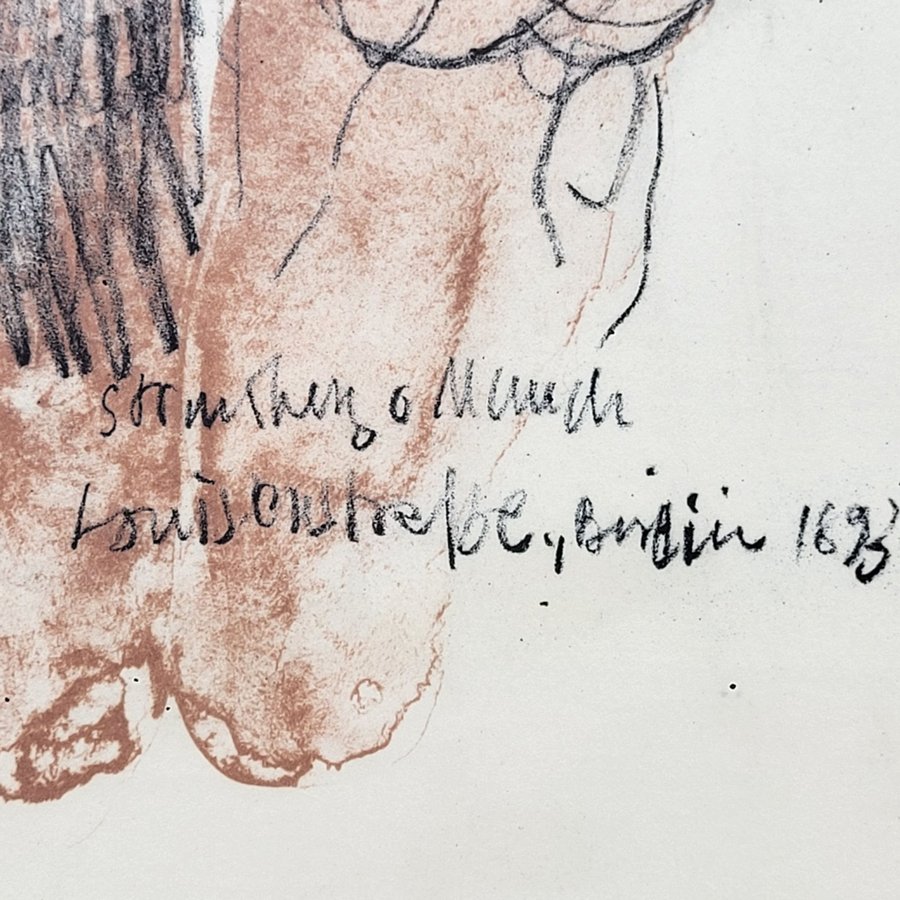 Strindberg o Munch
Louisenstraße., Berlin 1893